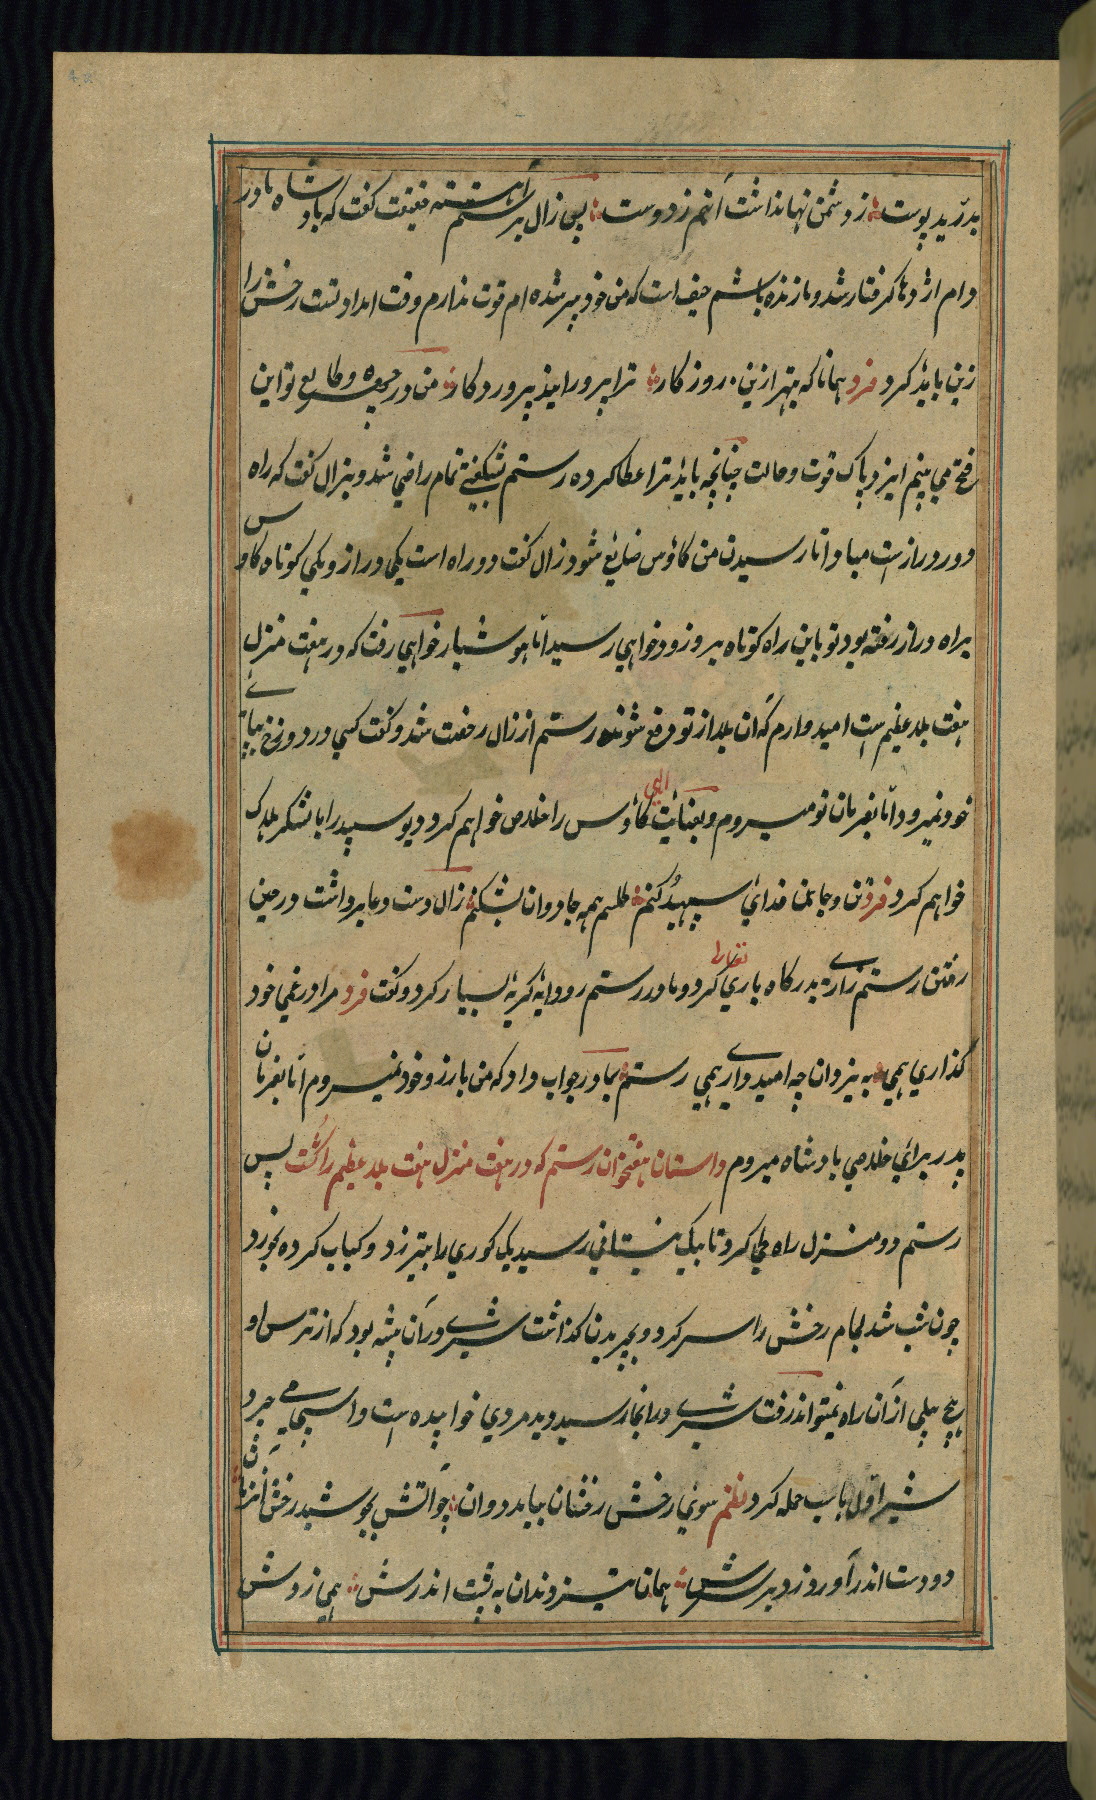 بدرّید پوست ز دشمن نهان داشت آنهم ز دوست پس زال بر رستم آهسته گفت که پادشاه ما در
دام اژدها گرفتار شد و ما زنده باشم حیف است که من خود پیر شده ام قوت ندارم وقت امداد تست رخش را
زین باید کرد فرد همانا که بهر این روزگار ترا پرورانید پروردگار من در چهره و طالع تو این
فتح می بینم ایزد پاک قوت و حالت چنانچه باید ترا عطا کرده رستم بشگفتی تمام راضی شد و بزال گفت که راه
دور دراز است مبادا تا رسیدن من کاؤس ضایع شود زال گفت دو راه است یکی دراز و یکی کوتاه کاوس
براه دراز رفته بود تو باین راه کوتاه برو زود خواهی رسید امّا هوشیار خواهی رفت که در هفت منزل
هفت بلد عظیم است امیدوارم که آن بلد از تو دفع شونده رستم از زال رخصت شد و گفت کسی در دوزخ بپای
خود نمیرود امّا بفرمان تو میروم و بعنایت الهی کاؤس را خلاص خواهم کرد دیو سپید را با لشکر هلاک
خواهم کرد فرد تن و جانان فدای سپهبد کنم طلسم همه جادوان بشکنم زال دست دعا برداشت در حین
رفتن رستم زاری بدرگاه باری تعالی کرد و مادر رستم رودابه گریهٔ بسیار کرد و گفت فرد مرا در غمی خود
گذاری همی به یزدان چه امیدواری همی رستم بمادر جواب داد که من بآرزو خود نمیروم امّا بفرمان
پدر برای خلاصی پادشاه میروم داستان هفتخوان رستم که در هفت منزل هفت بلد عظیم را کُشت پس
رستم دو منزل راه طی کرد تا بیک نیستانی رسید یک گوری را بتیر زد و کباب کرده بخورد
چون شب شد لجام رخش را سر کرد و بچریدن گذاشت شیری در آن بیشه بود که از ترس او
هیچ پیلی از آن راه نمیتواند رفت شیری در آنجا رسید دید مردی خوابیده است و اسپی می چرد
شیر اوّل باسپ حمله کرد نظم سوی رخش رخشان بیامد دوان چو آتش بجوشید رخش آنزمان
دو دست اندر آورد و زد بر سرش همان تیز دندان به پشت اندرش همی زدش